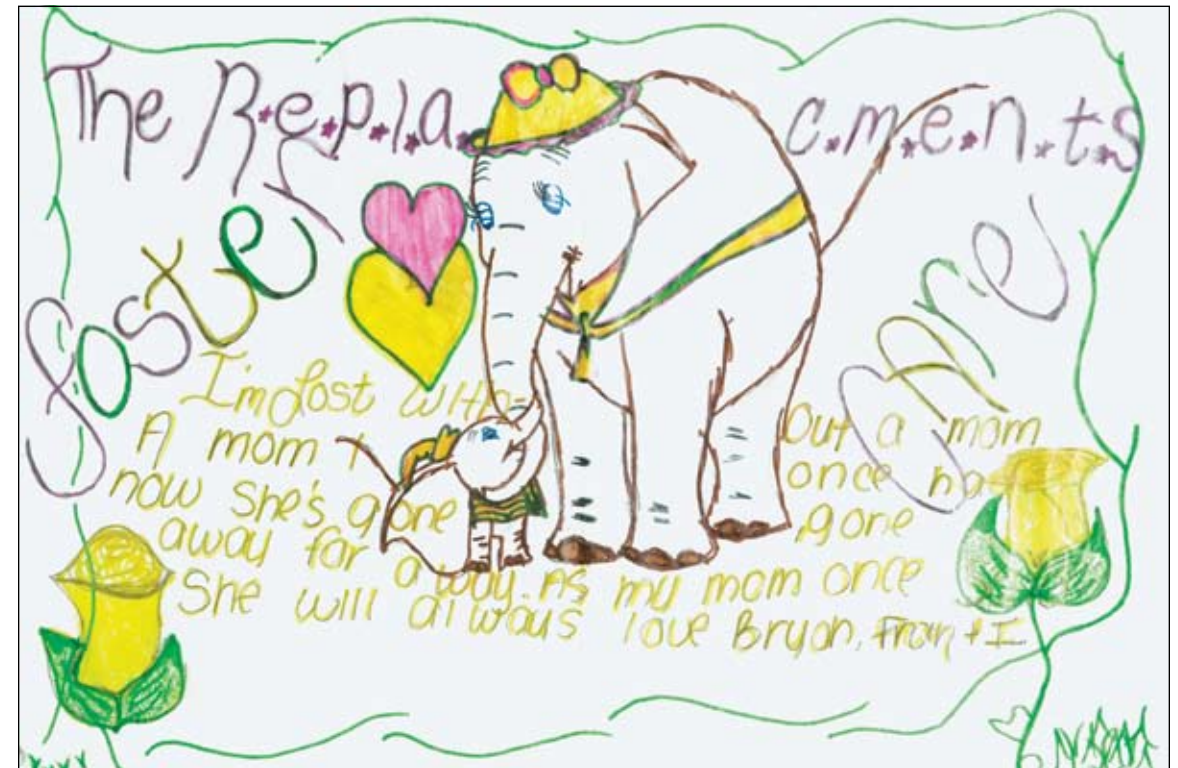 The R.e.p.l.a.c.m.e.n.t.s
foster CAre
I'm Lost With-Out a mom
A mom I once ha
now She's gone gone
away far away. As my mom once
She will always love Bryan, Fran + I